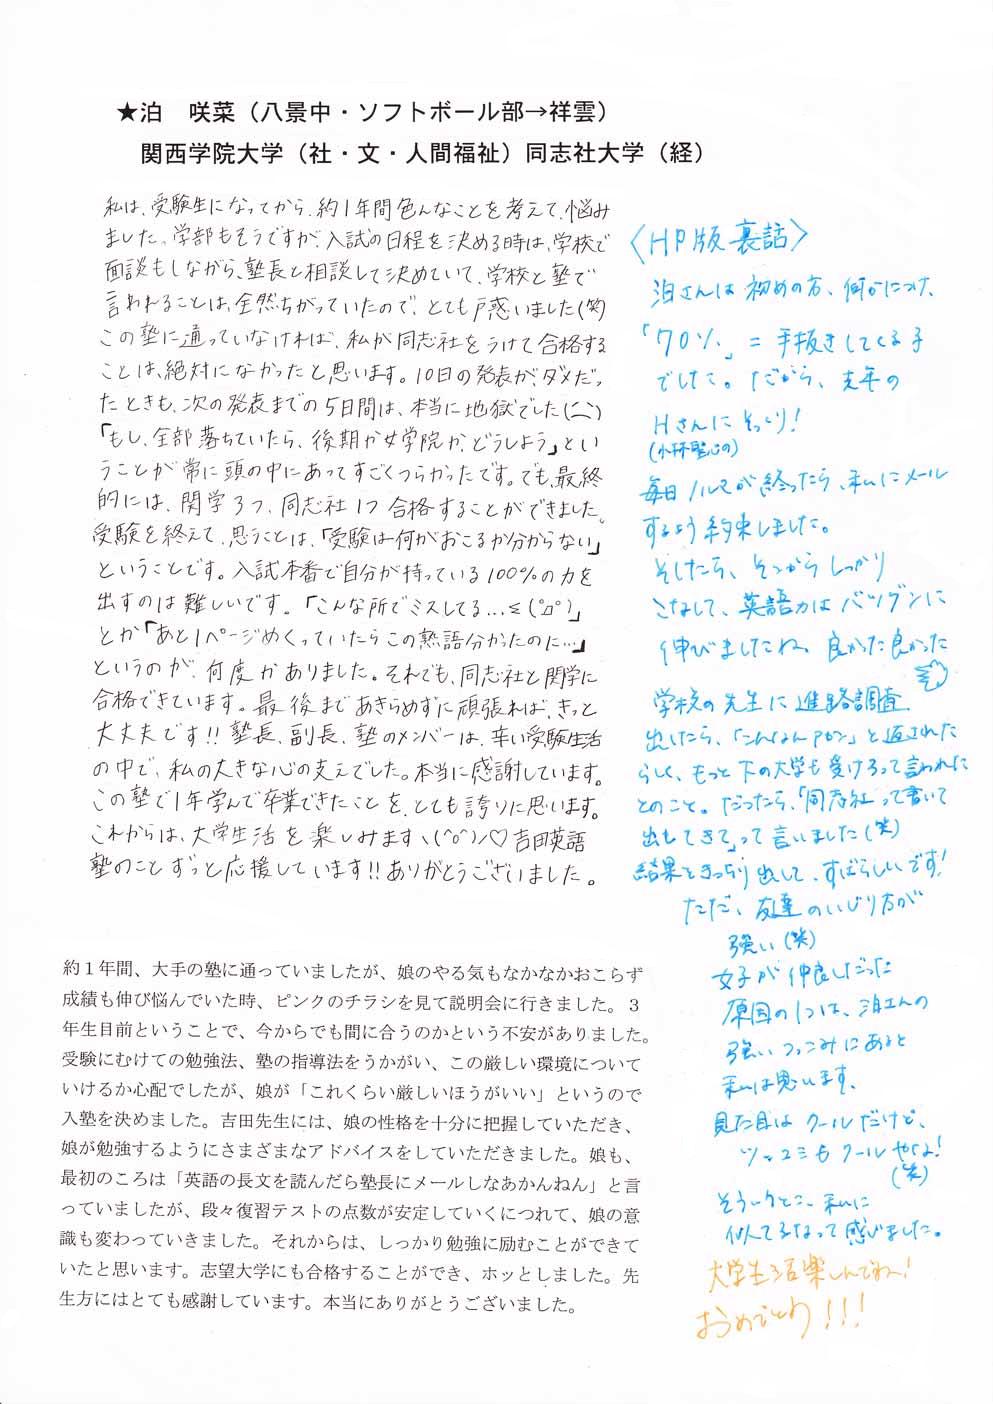 ★泊　咲菜（八景中・ソフトボール部→祥雲）
関西学院大学（社・文・人間福祉）同志社大学（経）
私は、受験生になってから、約1年間色んなことを考えて、悩み
ました。学部もそうですが、入試の日程を決める時は、学校で
面談もしながら、塾長と相談して決めていて、学校と塾で
言われることは、全然ちがっていたので、とても戸惑いました(笑)
この塾に通っていなければ、私が同志社をうけて合格する
ことは、絶対になかったと思います。10日の発表が、ダメだっ
たときも、次の発表までの5日間は、本当に地獄でした(︵)
「もし、全部落ちていたら、後期か女学院か、どうしよう」とい
うことが常に頭の中にあってすごくつらかったです。でも、最終
的には、関学3つ、同志社1つ合格することができました。
受験を終えて、思うことは、「受験は何がおこるか分からない」
ということです。入試本番で自分が持っている100%の力を
出すのは難しいです。「こんな所でミスしてる…Σ(ﾟдﾟ)」
とか「あと1ページめくっていたらこの熟語分かったのに…」
というのが、何度かありました。それでも、同志社と関学に
合格できています。最後まであきらめずに頑張れば、きっと
大丈夫です!! 塾長、副長、塾のメンバーは、辛い受験生活
の中で、私の大きな心の支えでした。本当に感謝しています。
この塾で1年学んで卒業できたことを、とても誇りに思います。
これからは、大学生活を楽しみますヽ(^o^)ノ♡吉田英語
塾のことずっと応援しています!!ありがとうございました。
約１年間、大手の塾に通っていましたが、娘のやる気もなかなかおこらず
成績も伸び悩んでいた時、ピンクのチラシを見て説明会に行きました。３
年生目前ということで、今からでも間に合うのかという不安がありました。
受験にむけての勉強法、塾の指導法をうかがい、この厳しい環境について
いけるか心配でしたが、娘が「これくらい厳しいほうがいい」というので
入塾を決めました。吉田先生には、娘の性格を十分に把握していただき、
娘が勉強するようにさまざまなアドバイスをしていただきました。娘も、
最初のころは「英語の長文を読んだら塾長にメールしなあかんねん」と言
っていましたが、段々復習テストの点数が安定していくにつれて、娘の意
識も変わっていきました。それからは、しっかり勉強に励むことができて
いたと思います。志望大学にも合格することができ、ホッとしました。先
生方にはとても感謝しています。本当にありがとうございました。
〈HP版裏話〉
泊さんは初めの方、何かにつけ、
「70%」＝手抜きしてくる子
でした。だから、去年の
Hさんにそっくり！
(小林聖心の)
毎日ノルマが終ったら、私にメール
するよう約束しました。
そしたら、そこからしっかり
こなして、英語力はバツグンに
伸びましたね。良かった良かった
学校の先生に進路調査
出したら、「こんなんアカン」と返された
らしく、もっと下の大学も受けろって言われた
とのこと。だったら、「同志社って書いて
出してきて」って言いました(笑)
結果をきっちり出して、すばらしいです！
ただ、友達のいじり方が
強い(笑)
女子が仲良しだった
原因の1つは、泊さんの
強いつっこみにあると
私は思います。
見た目はクールだけど、
ツッコミもクールやね！
(笑)
そういうとこ、私に
似てるなって感じました。
大学生活楽しんでね〜！
おめでとう！！！